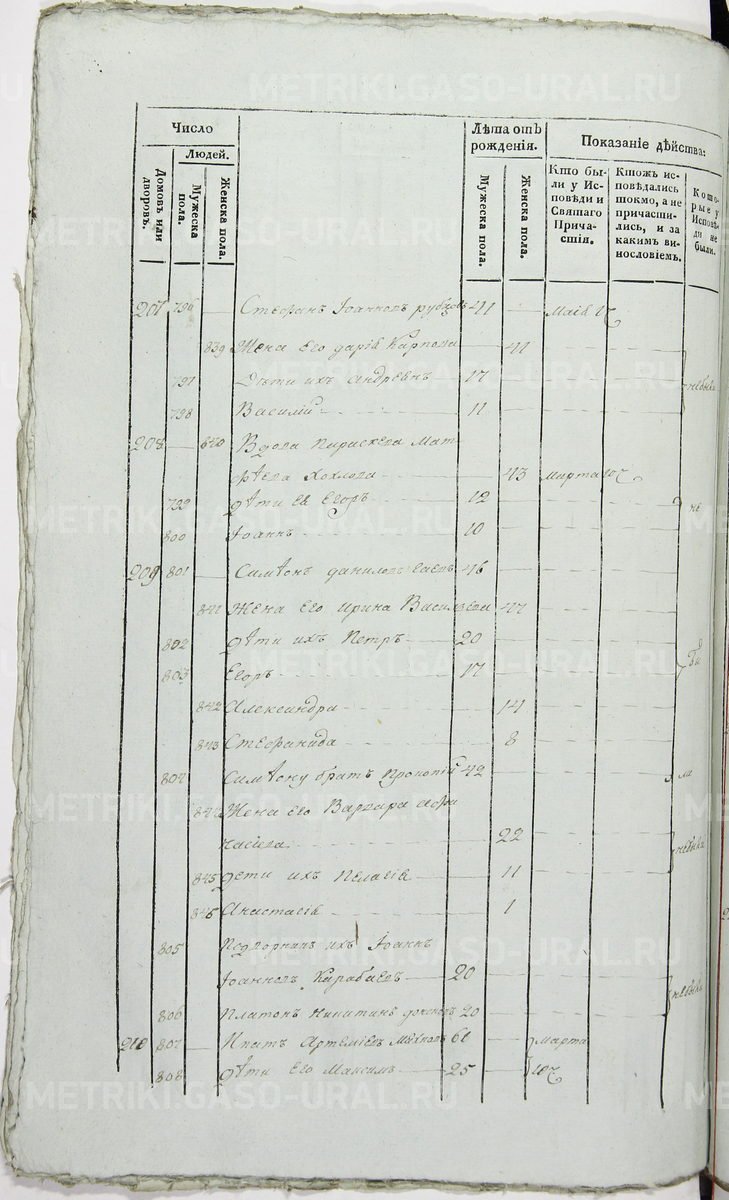 Число
Людей.
Домовъ или дворовъ.
Мужеска пола.
Женска пола.
Лѣта отъ рожденія.
Мужеска пола.
Женска пола.
Показаніе дѣйства:
Кто бы-
ли у Ис-
повѣди и
Святаго
Прича-
стія.
Ктожъ ис-
повѣдались
токмо, а не
причасти-
лись, и за
какимъ ви-
нословіемъ.
Кото-
рые у
Исповѣ-
ди не
были.
207 796 Стефанъ Іоанновъ рубцовъ 41
839 Жена Его дарія Карпова 41
797 Дѣти ихъ андреянъ 17 небыли
798 Василій 11
208 840 Вдова Параскева Мат
фѣева Хохлова 43 марта
799 дѣти Ея Егоръ 12 не
800 Іоаннъ 10
209 801 Симѣонъ даниловъ 46
841 Жена Его ирина Василіева 47
802 дѣти ихъ Петръ 20
803 Егоръ 17 бы
842 Александра 14
843 Стефанида 8
804 Симѣону братъ Прокопій 42 ли
844 Жена Его Варвара Афа
насіева 22 небыли
845 дети ихъ Пелагія 11
846 Анастасія 1
805 ихъ Іоаннъ
Іоанновъ Карабаевъ 20
806 Платонъ Никитинъ 20 небыли
210 807 Ипатъ Артеміевъ 61 марта
808 дѣти Его Максимъ 25
METRIKI.GASO-URAL.RU